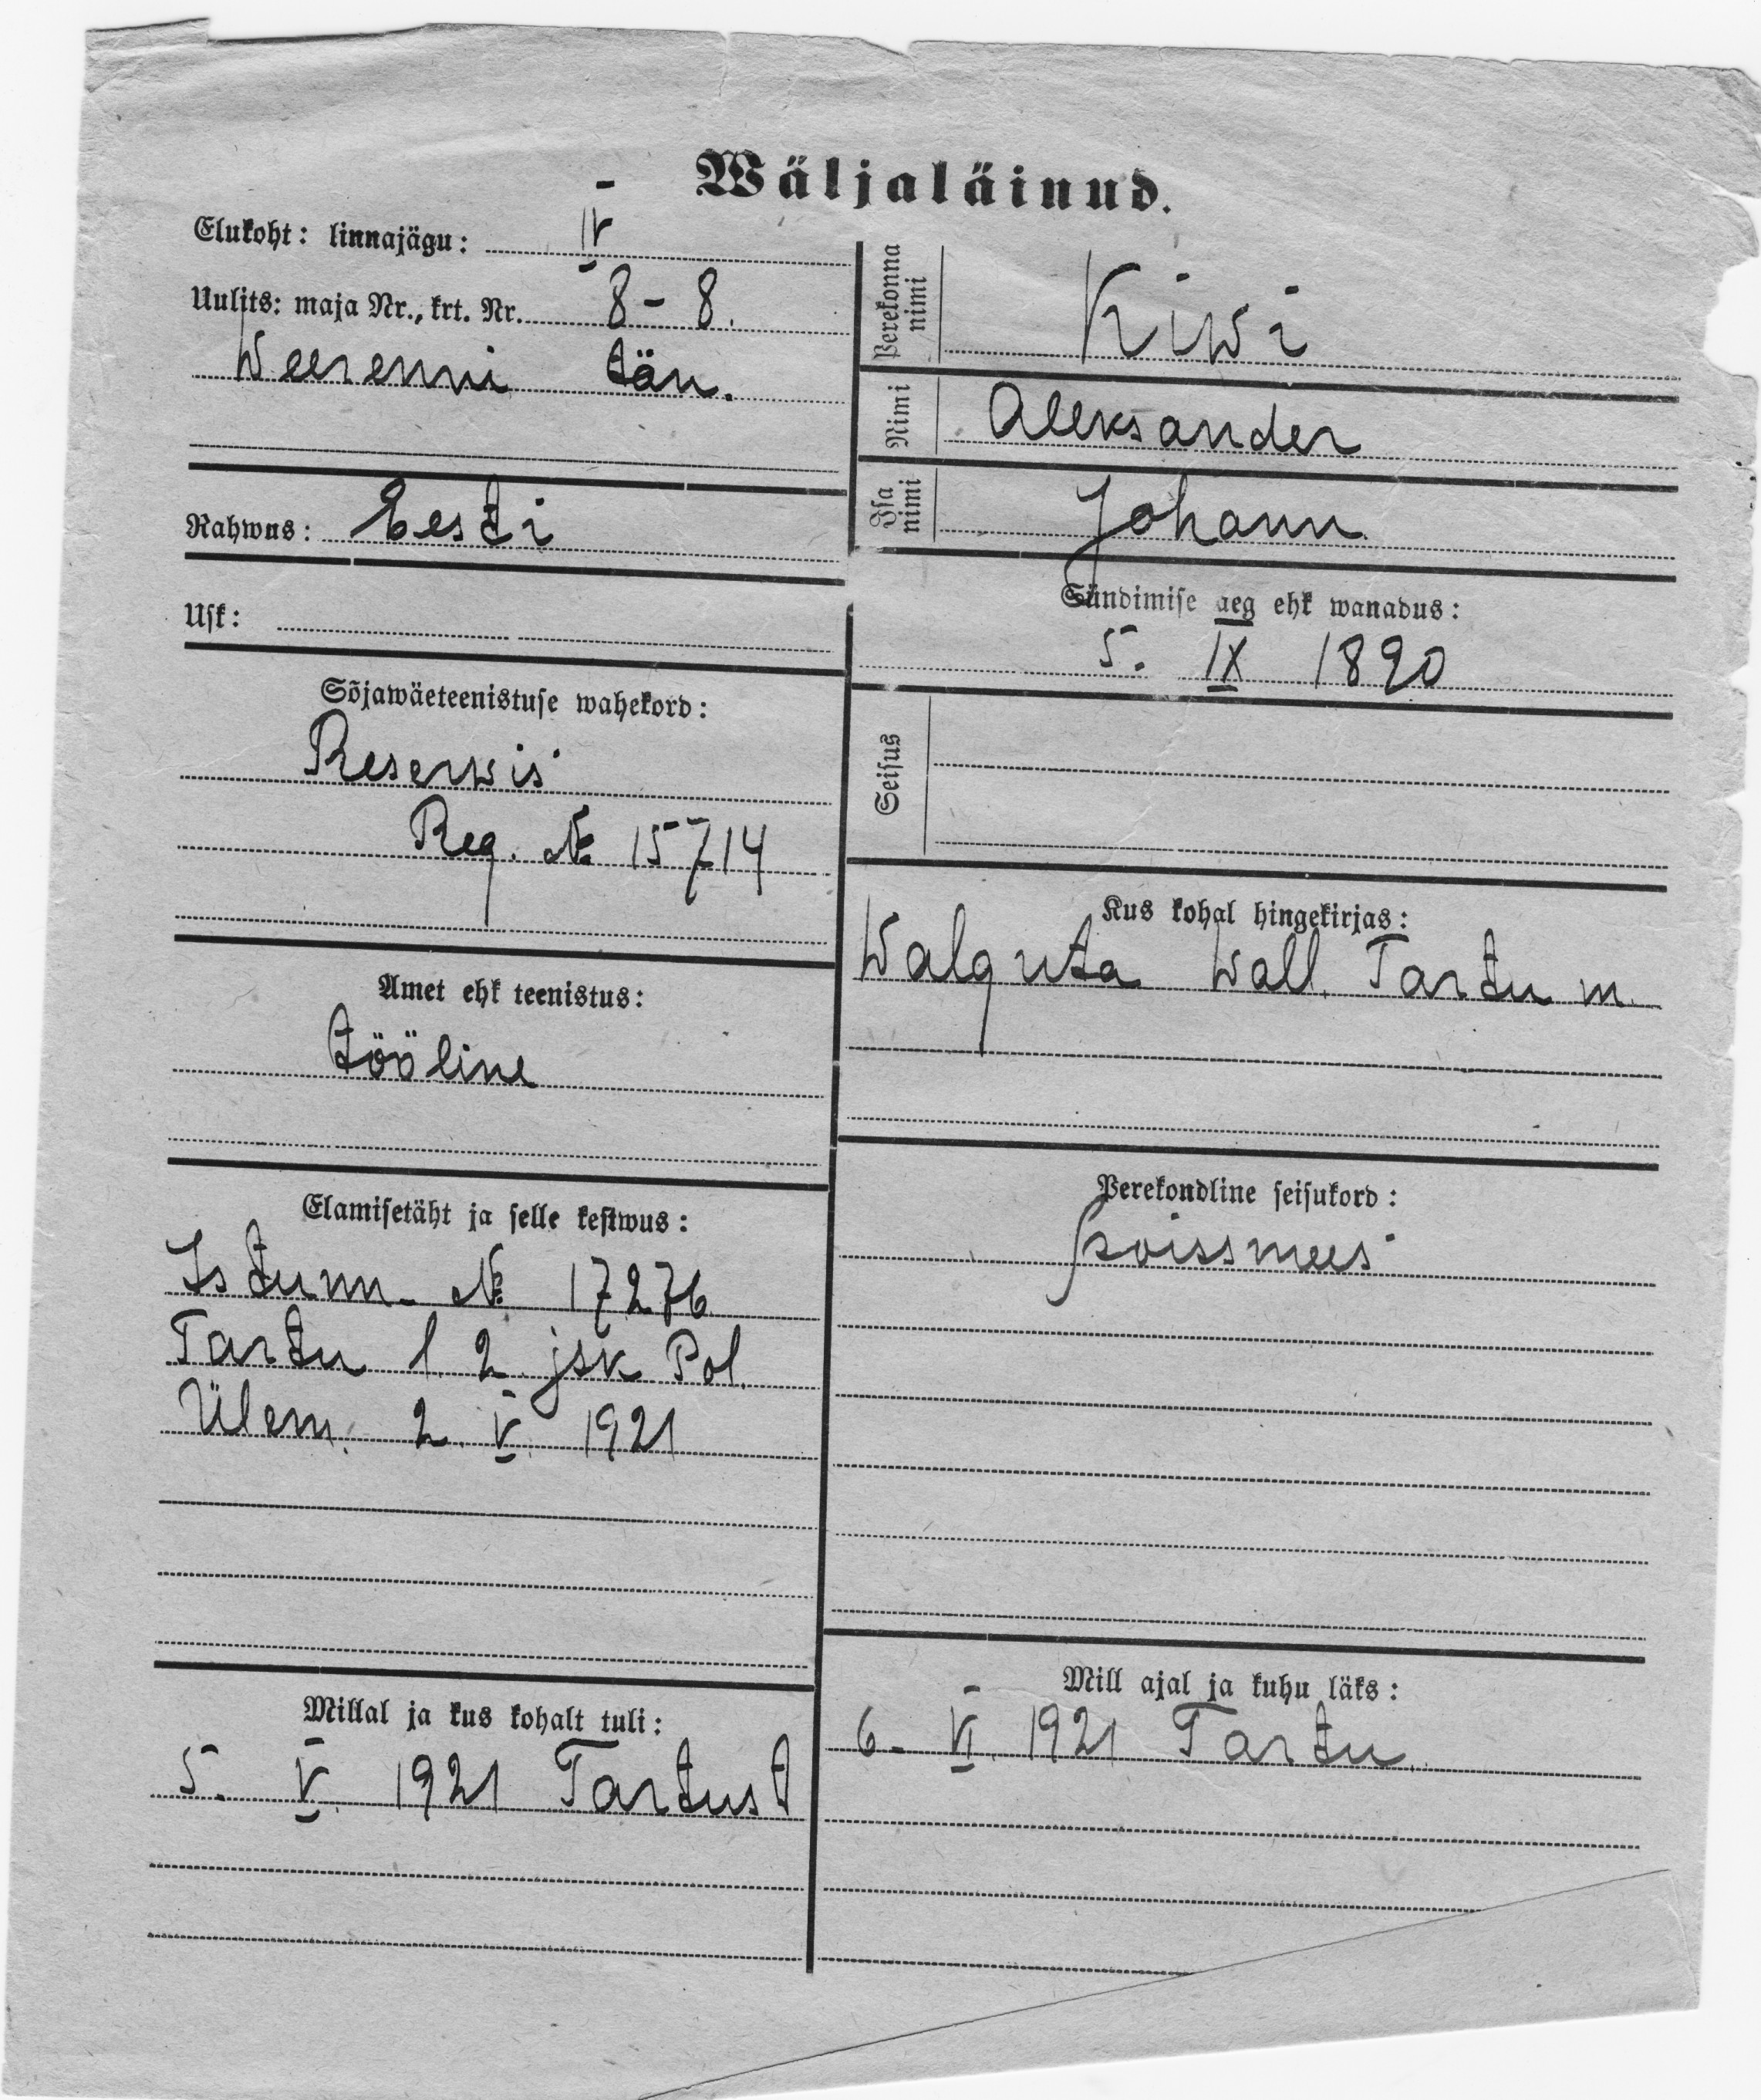 Wäljaläinud.
Elukoht: linnajägu: IV
Uulits: maja Nr., krt. Nr. 8 – 8.
Weerenni tän.
Rahwus: Eesti
Usk:
Sõjawäeteenistuse wahekord:
Reserwis
Reg. № 15714
Amet ehk teenistus:
tööline
Elamisetäht ja selle kestwus:
Istunn. № 17276
Tartu l. 2. jsk Pol.
Ülem. 2. V. 1921
Millal ja kus kohalt tuli:
5. V. 1921 Tartust
Perekonna nimi Kiwi
Nimi Aleksander
Isa nimi Johann
Sündimise aeg ehk wanadus:
5. IX 1890
Seisus
Kus kohal hingekirjas:
Walguta wall. Tartu m.
Perekondline seisukord:
poissmees
Mill ajal ja kuhu läks:
6. VI. 1921 Tartu.